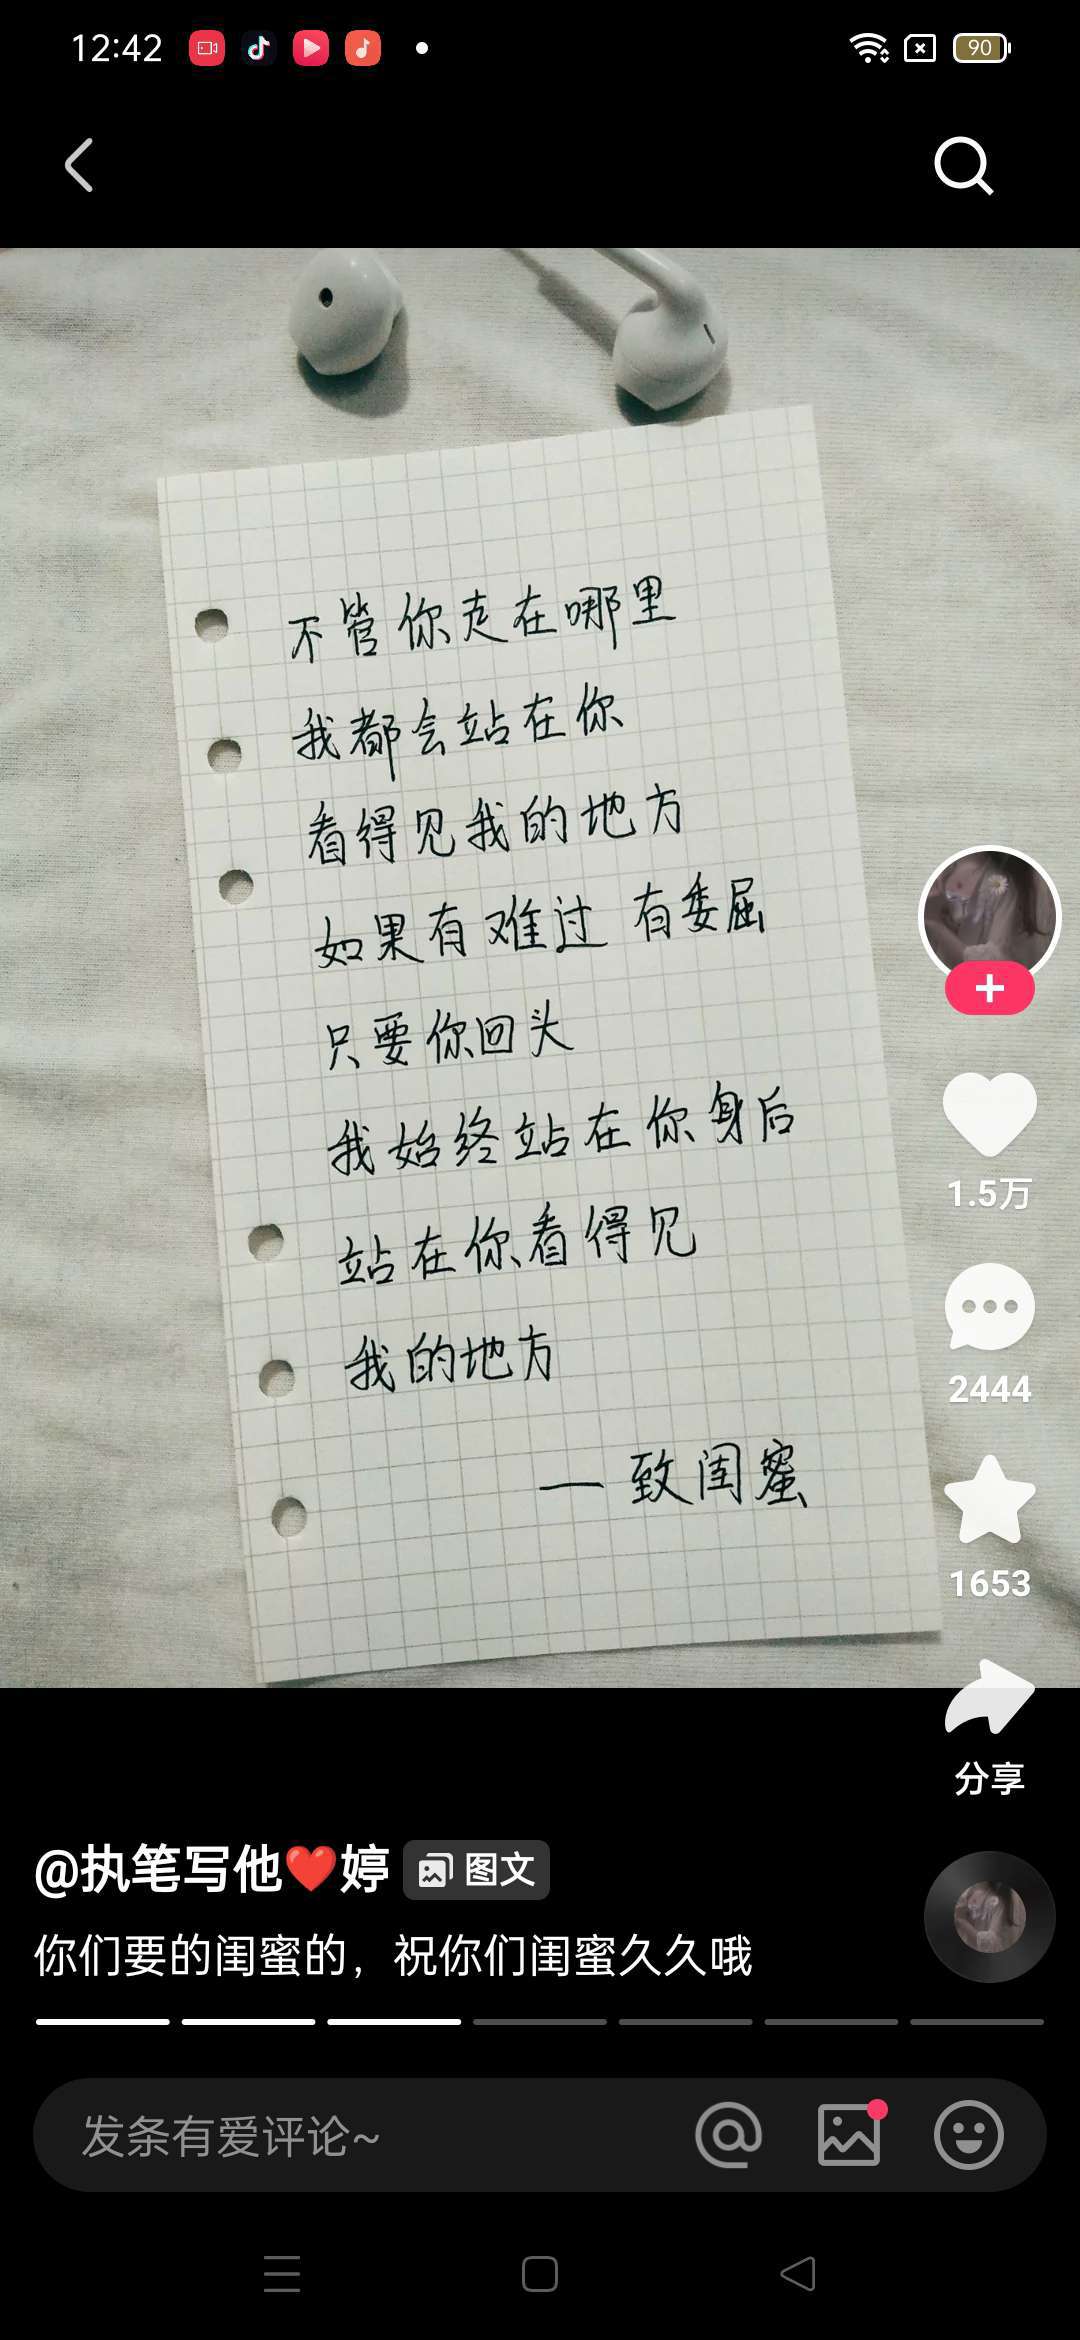 12:42
90
不管你走在哪里
我都会站在你
看得见我的地方
如果有难过 有委屈
只要你回头
我始终站在你身后
站在你看得见
我的地方
—致闺蜜
1.5万
2444
1653
分享
@执笔写他❤️婷 图文
你们要的闺蜜的，祝你们闺蜜久久哦
发条有爱评论~